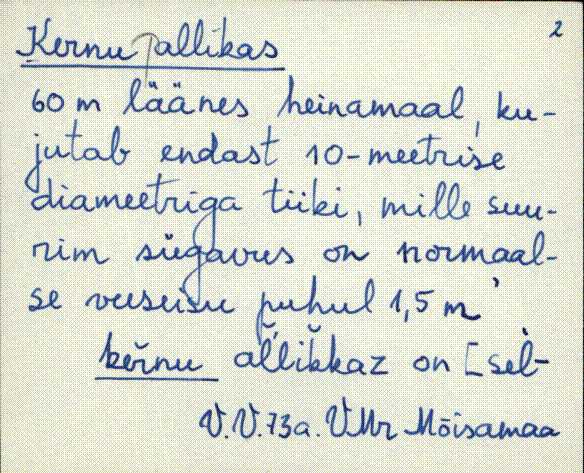 2
Kernu allikas
60 m läänes heinamaal, ku-
jutab endast 10-meetrise
diameetriga tiiki, mille suu-
rim sügavus on normaal-
se veeseisu puhul 1,5 m
keřnu all̆ik̆kaz on [sel-
V.V.73a. VMr Mõisamaa